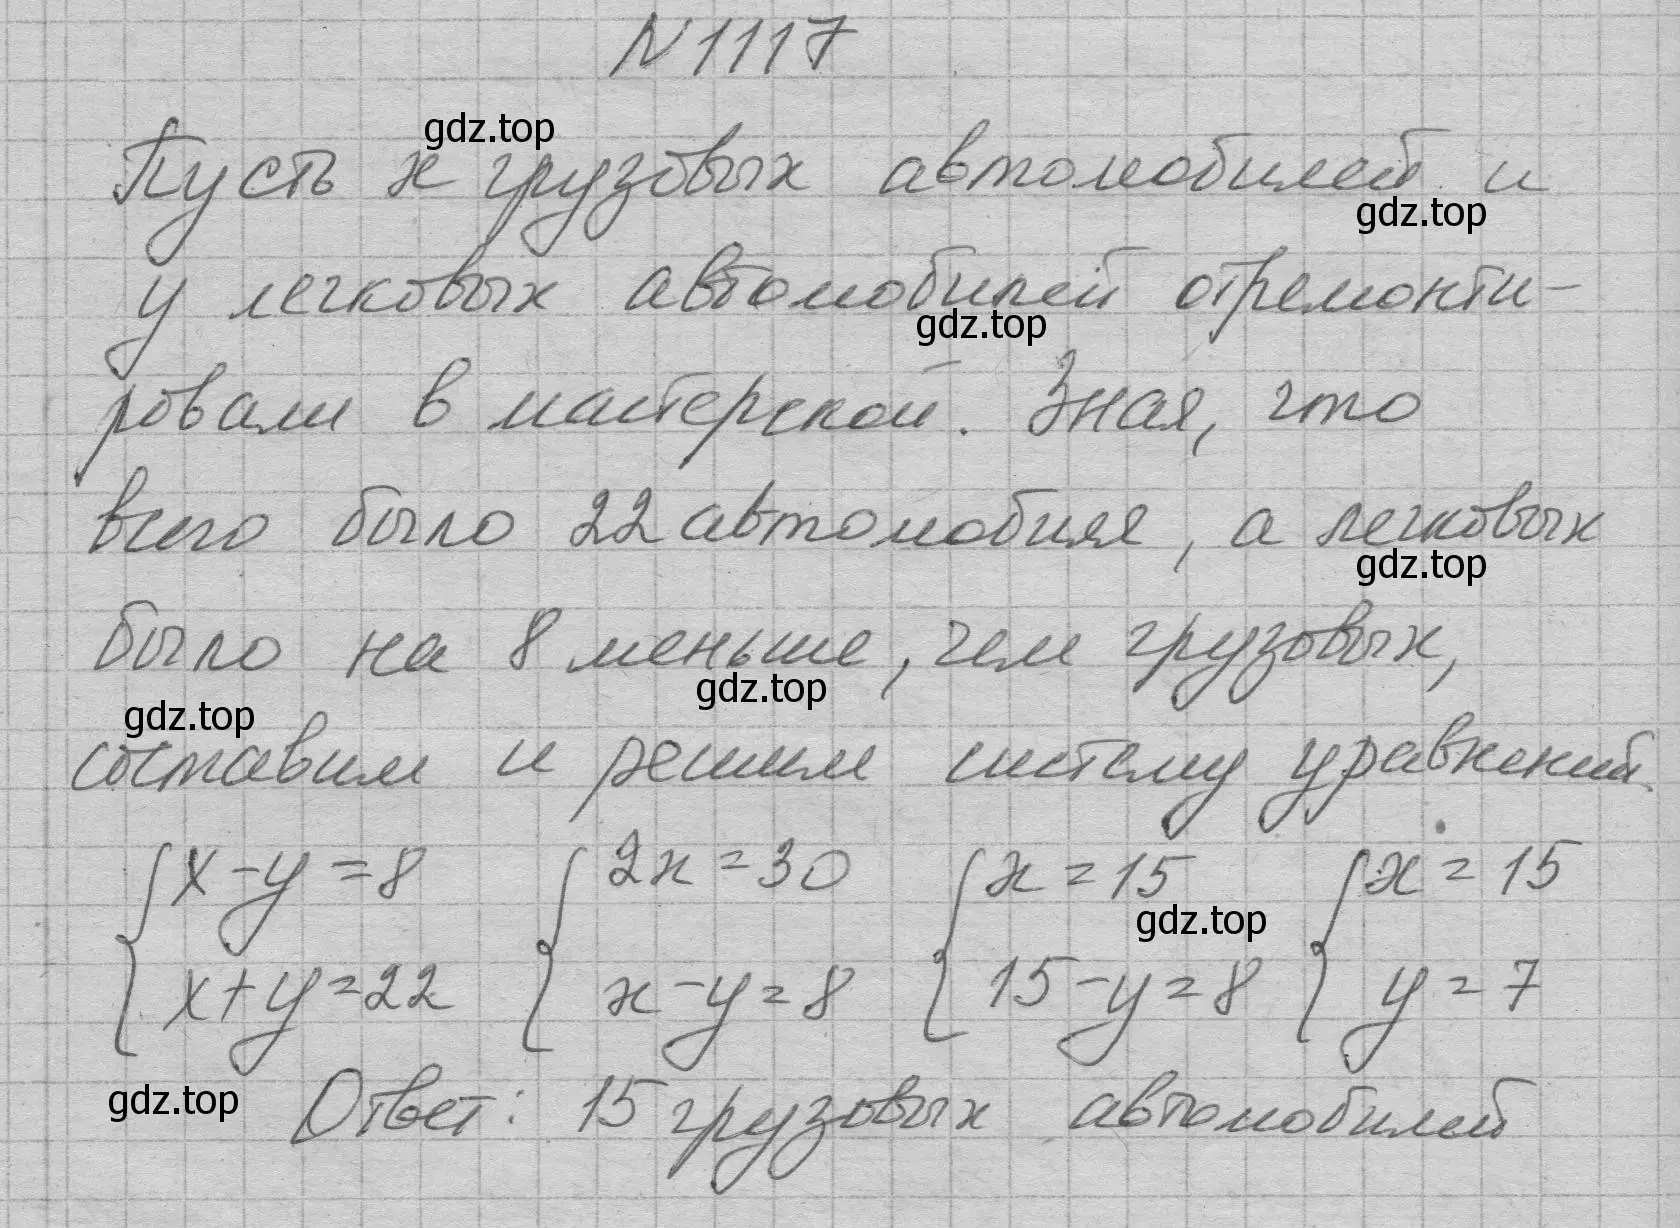 N 1117
gdz.top
Пусть x грузовых автомобилей и
gdz.top
y легковых автомобилей отремонти-
gdz.top
ровали в мастерской. Зная, что
всего было 22 автомобиля, а легковых
gdz.top
было на 8 меньше, чем грузовых,
gdz.top
gdz.top
составим и решим систему уравнений
{x-y=8 {2x=30 {x=15 {x=15
gdz.top
x+y=22 x-y=8 15-y=8 y=7
gdz.top
Ответ: 15 грузовых автомобилей